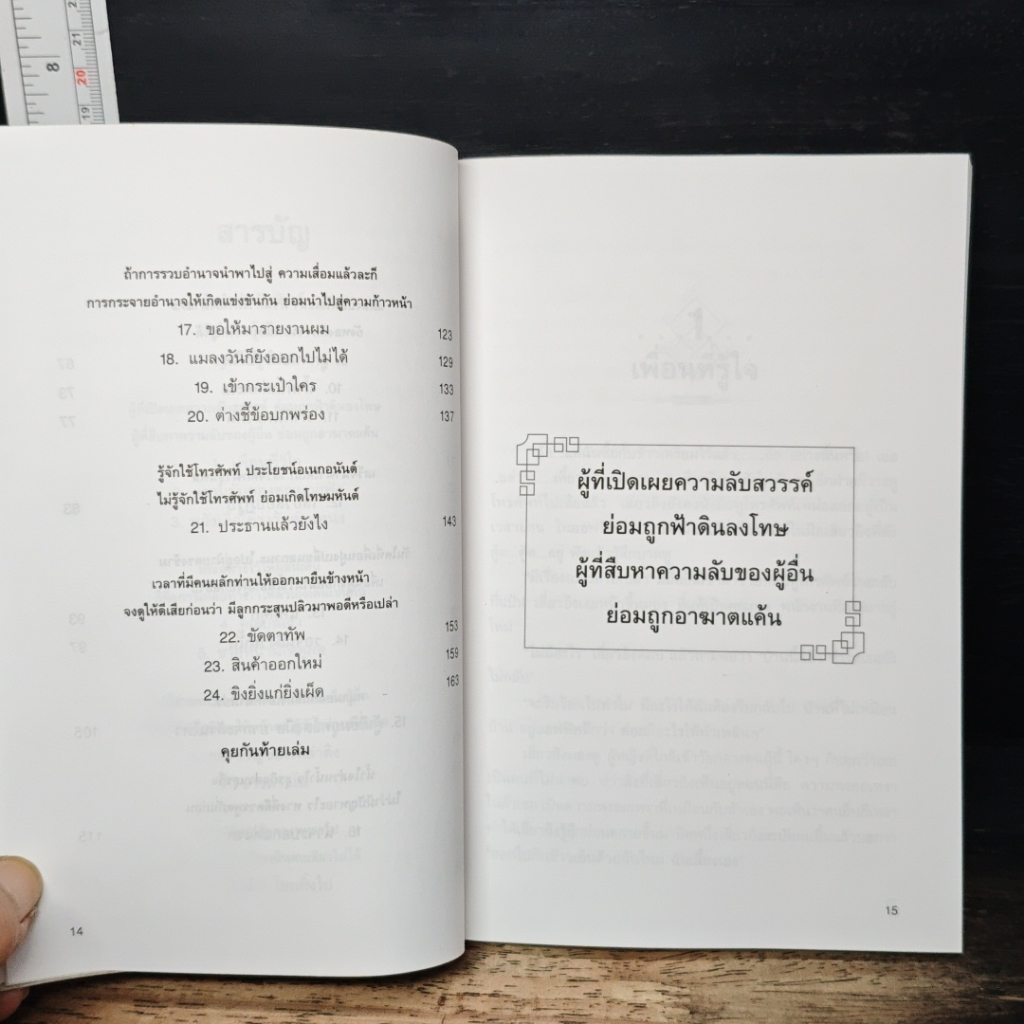 8
21
20
19
สารบัญ
ถ้าการรวบอำนาจนำพาไปสู่ ความเสื่อมแล้วละก็
การกระจายอำนาจให้เกิดแข่งขันกัน ย่อมนำไปสู่ความก้าวหน้า
17. ขอให้มารายงานผม 123
18. แมลงวันก็ยังออกไปไม่ได้ 129
19. เข้ากระเป๋าใคร 133
20. ต่างชี้ข้อบกพร่อง 137
รู้จักใช้โทรศัพท์ ประโยชน์อเนกอนันต์
ไม่รู้จักใช้โทรศัพท์ ย่อมเกิดโทษมหันต์
21. ประธานแล้วยังไง 143
เวลาที่มีคนผลักท่านให้ออกมายืนข้างหน้า
จงดูให้ดีเสียก่อนว่า มีลูกกระสุนปลิวมาพอดีหรือเปล่า
22. ขัดตาทัพ 153
23. สินค้าออกใหม่ 159
24. ขิงยิ่งแก่ยิ่งเผ็ด 163
คุยกันท้ายเล่ม
14
1
เพื่อนที่รู้ใจ
ผู้ที่เปิดเผยความลับสวรรค์
ย่อมถูกฟ้าดินลงโทษ
ผู้ที่สืบหาความลับของผู้อื่น
ย่อมถูกอาฆาตแค้น
15